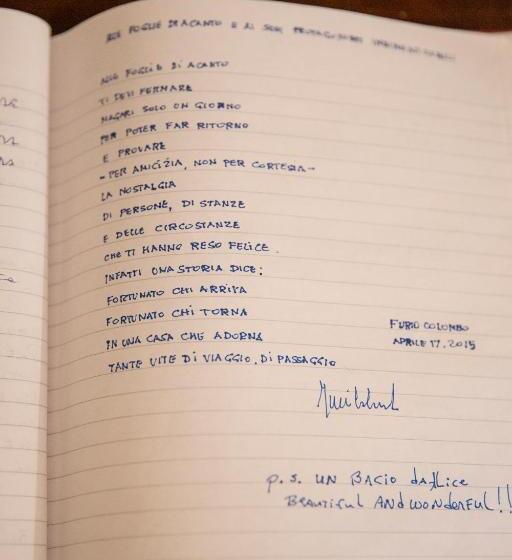 ALLE FOGLIE DI ACANTO E AI SUOI PROTAGONISTI
ALLE FOGLIE DI ACANTO
TI DEVI FERMARE
MAGARI SOLO UN GIORNO
PER POTER FAR RITORNO
E PROVARE
- PER AMICIZIA, NON PER CORTESIA -
LA NOSTALGIA
DI PERSONE, DI STANZE
E DELLE CIRCOSTANZE
CHE TI HANNO RESO FELICE.
INFATTI UNA STORIA DICE:
FORTUNATO CHI ARRIVA
FORTUNATO CHI TORNA
IN UNA CASA CHE ADORNA
TANTE VITE DI VIAGGIO, DI PASSAGGIO
FURIO COLOMBO
APRILE 17, 2015
P.S. UN BACIO da Alice
BEAUTIFUL AND WONDERFUL!!